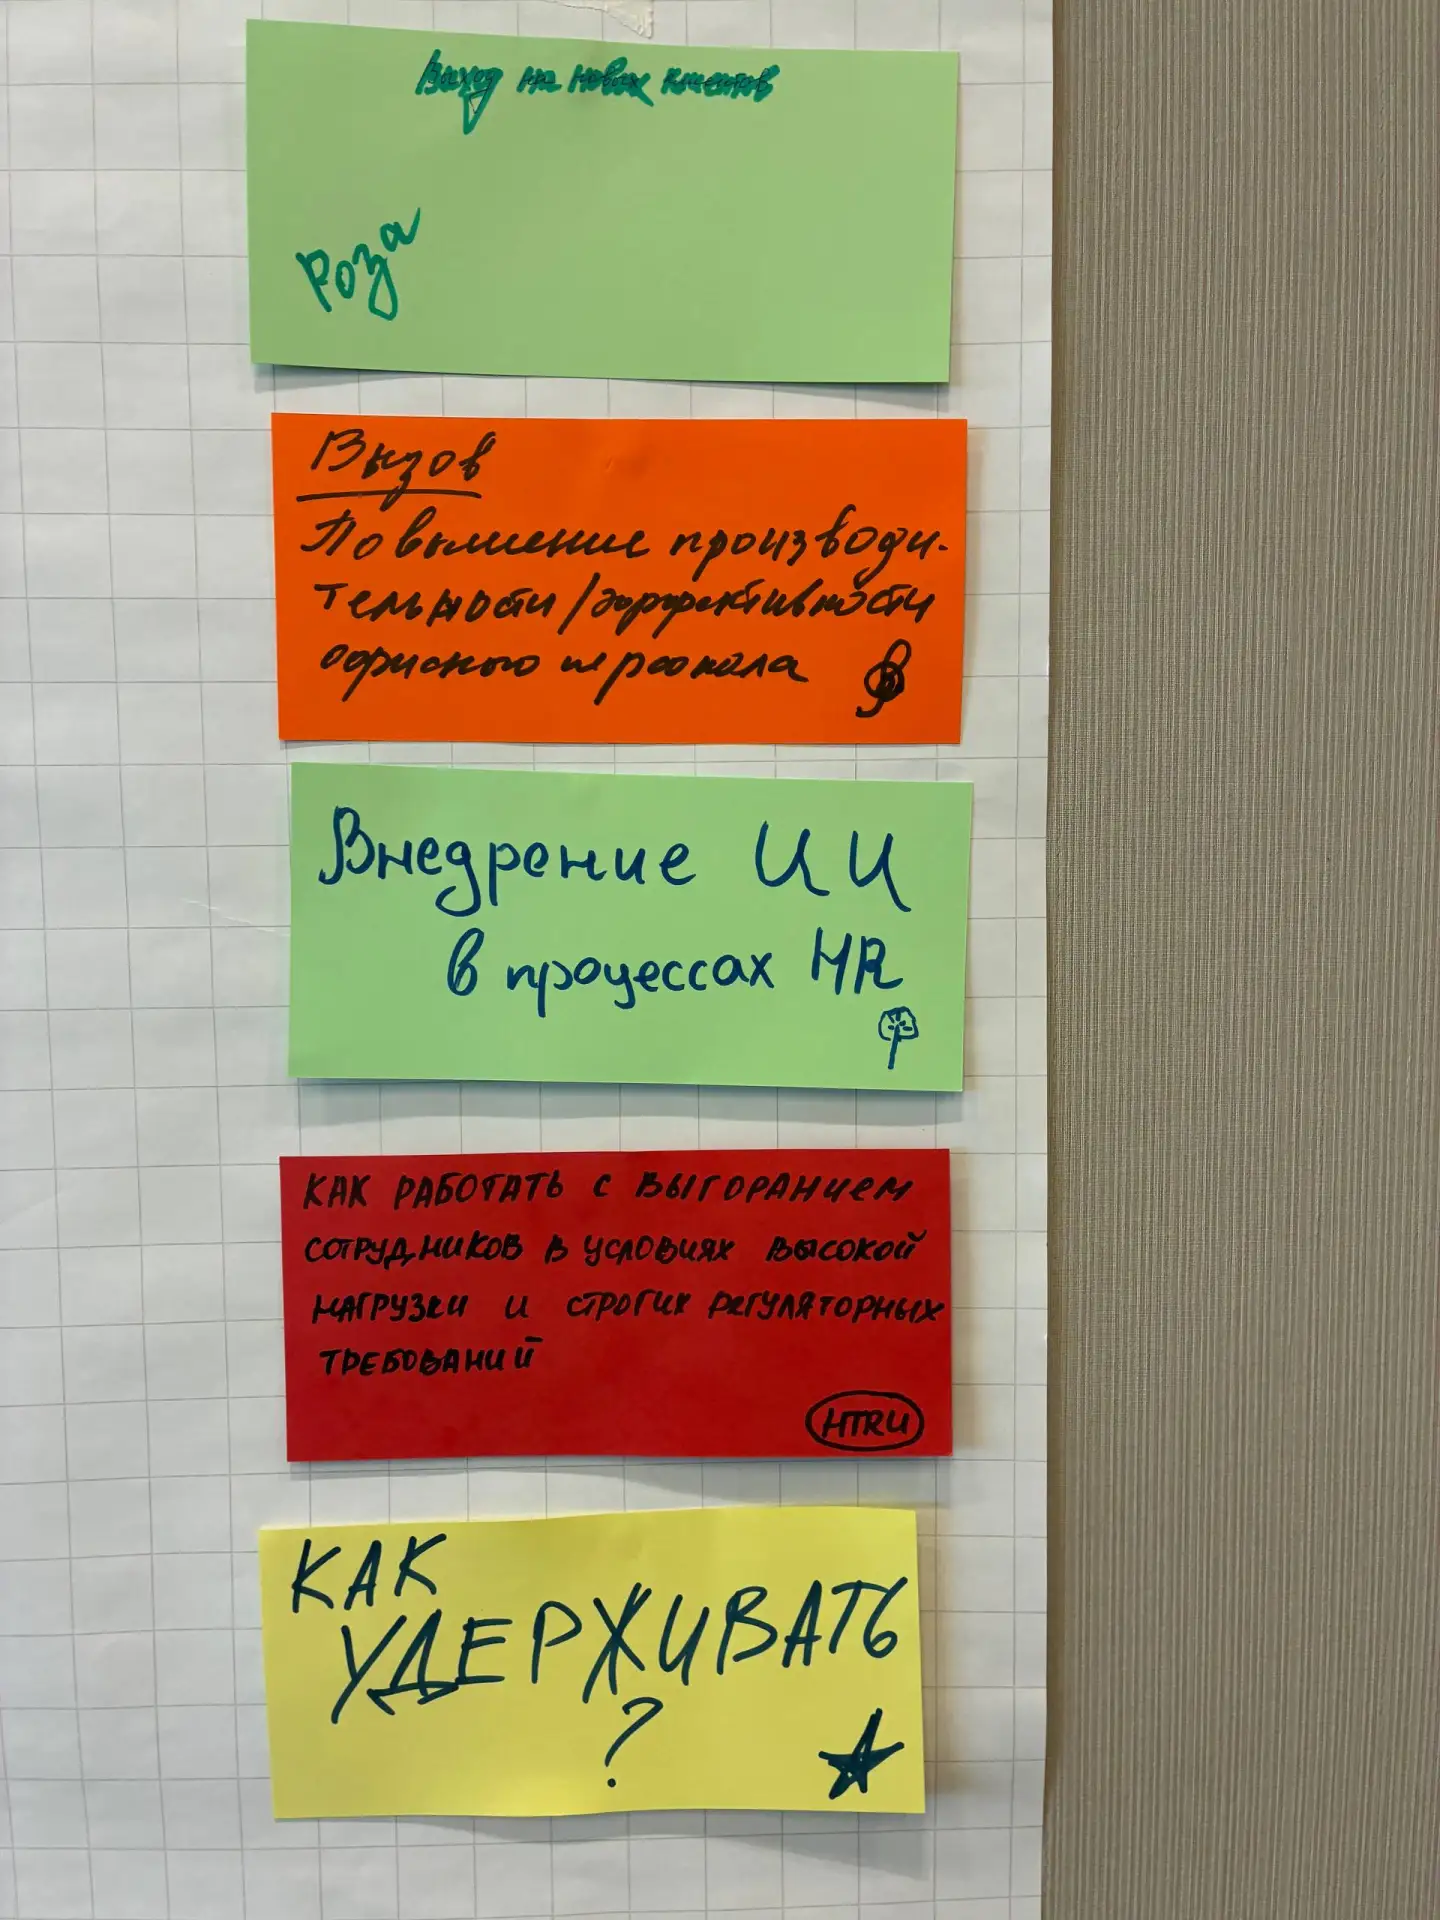 Выход на новых клиентов
Роза
Вызов
Повышение производи-
тельности/эффективности
офисного персонала
Внедрение ИИ
в процессах HR
КАК РАБОТАТЬ С ВЫГОРАНИЕМ
СОТРУДНИКОВ В УСЛОВИЯХ ВЫСОКОЙ
НАГРУЗКИ И СТРОГИХ РЕГУЛЯТОРНЫХ
ТРЕБОВАНИЙ
HTRU
КАК
УДЕРЖИВАТЬ
?